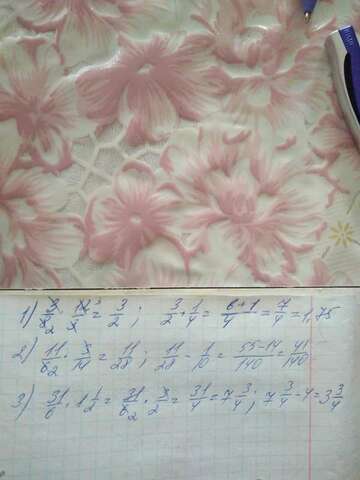 1) 8/8₂ · 12³/8 = 3/2 ; 3/2 + 1/4 = 6+1/4 = 7/4 = 1,75
2) 11/6₂ · 3/14 = 11/28 ; 11/28 - 1/10 = 55-14/140 = 41/140
3) 31/6 · 1 1/2 = 31/6₂ · 3/2 = 31/4 = 7 3/4 ; 7 3/4 - 4 = 3 3/4